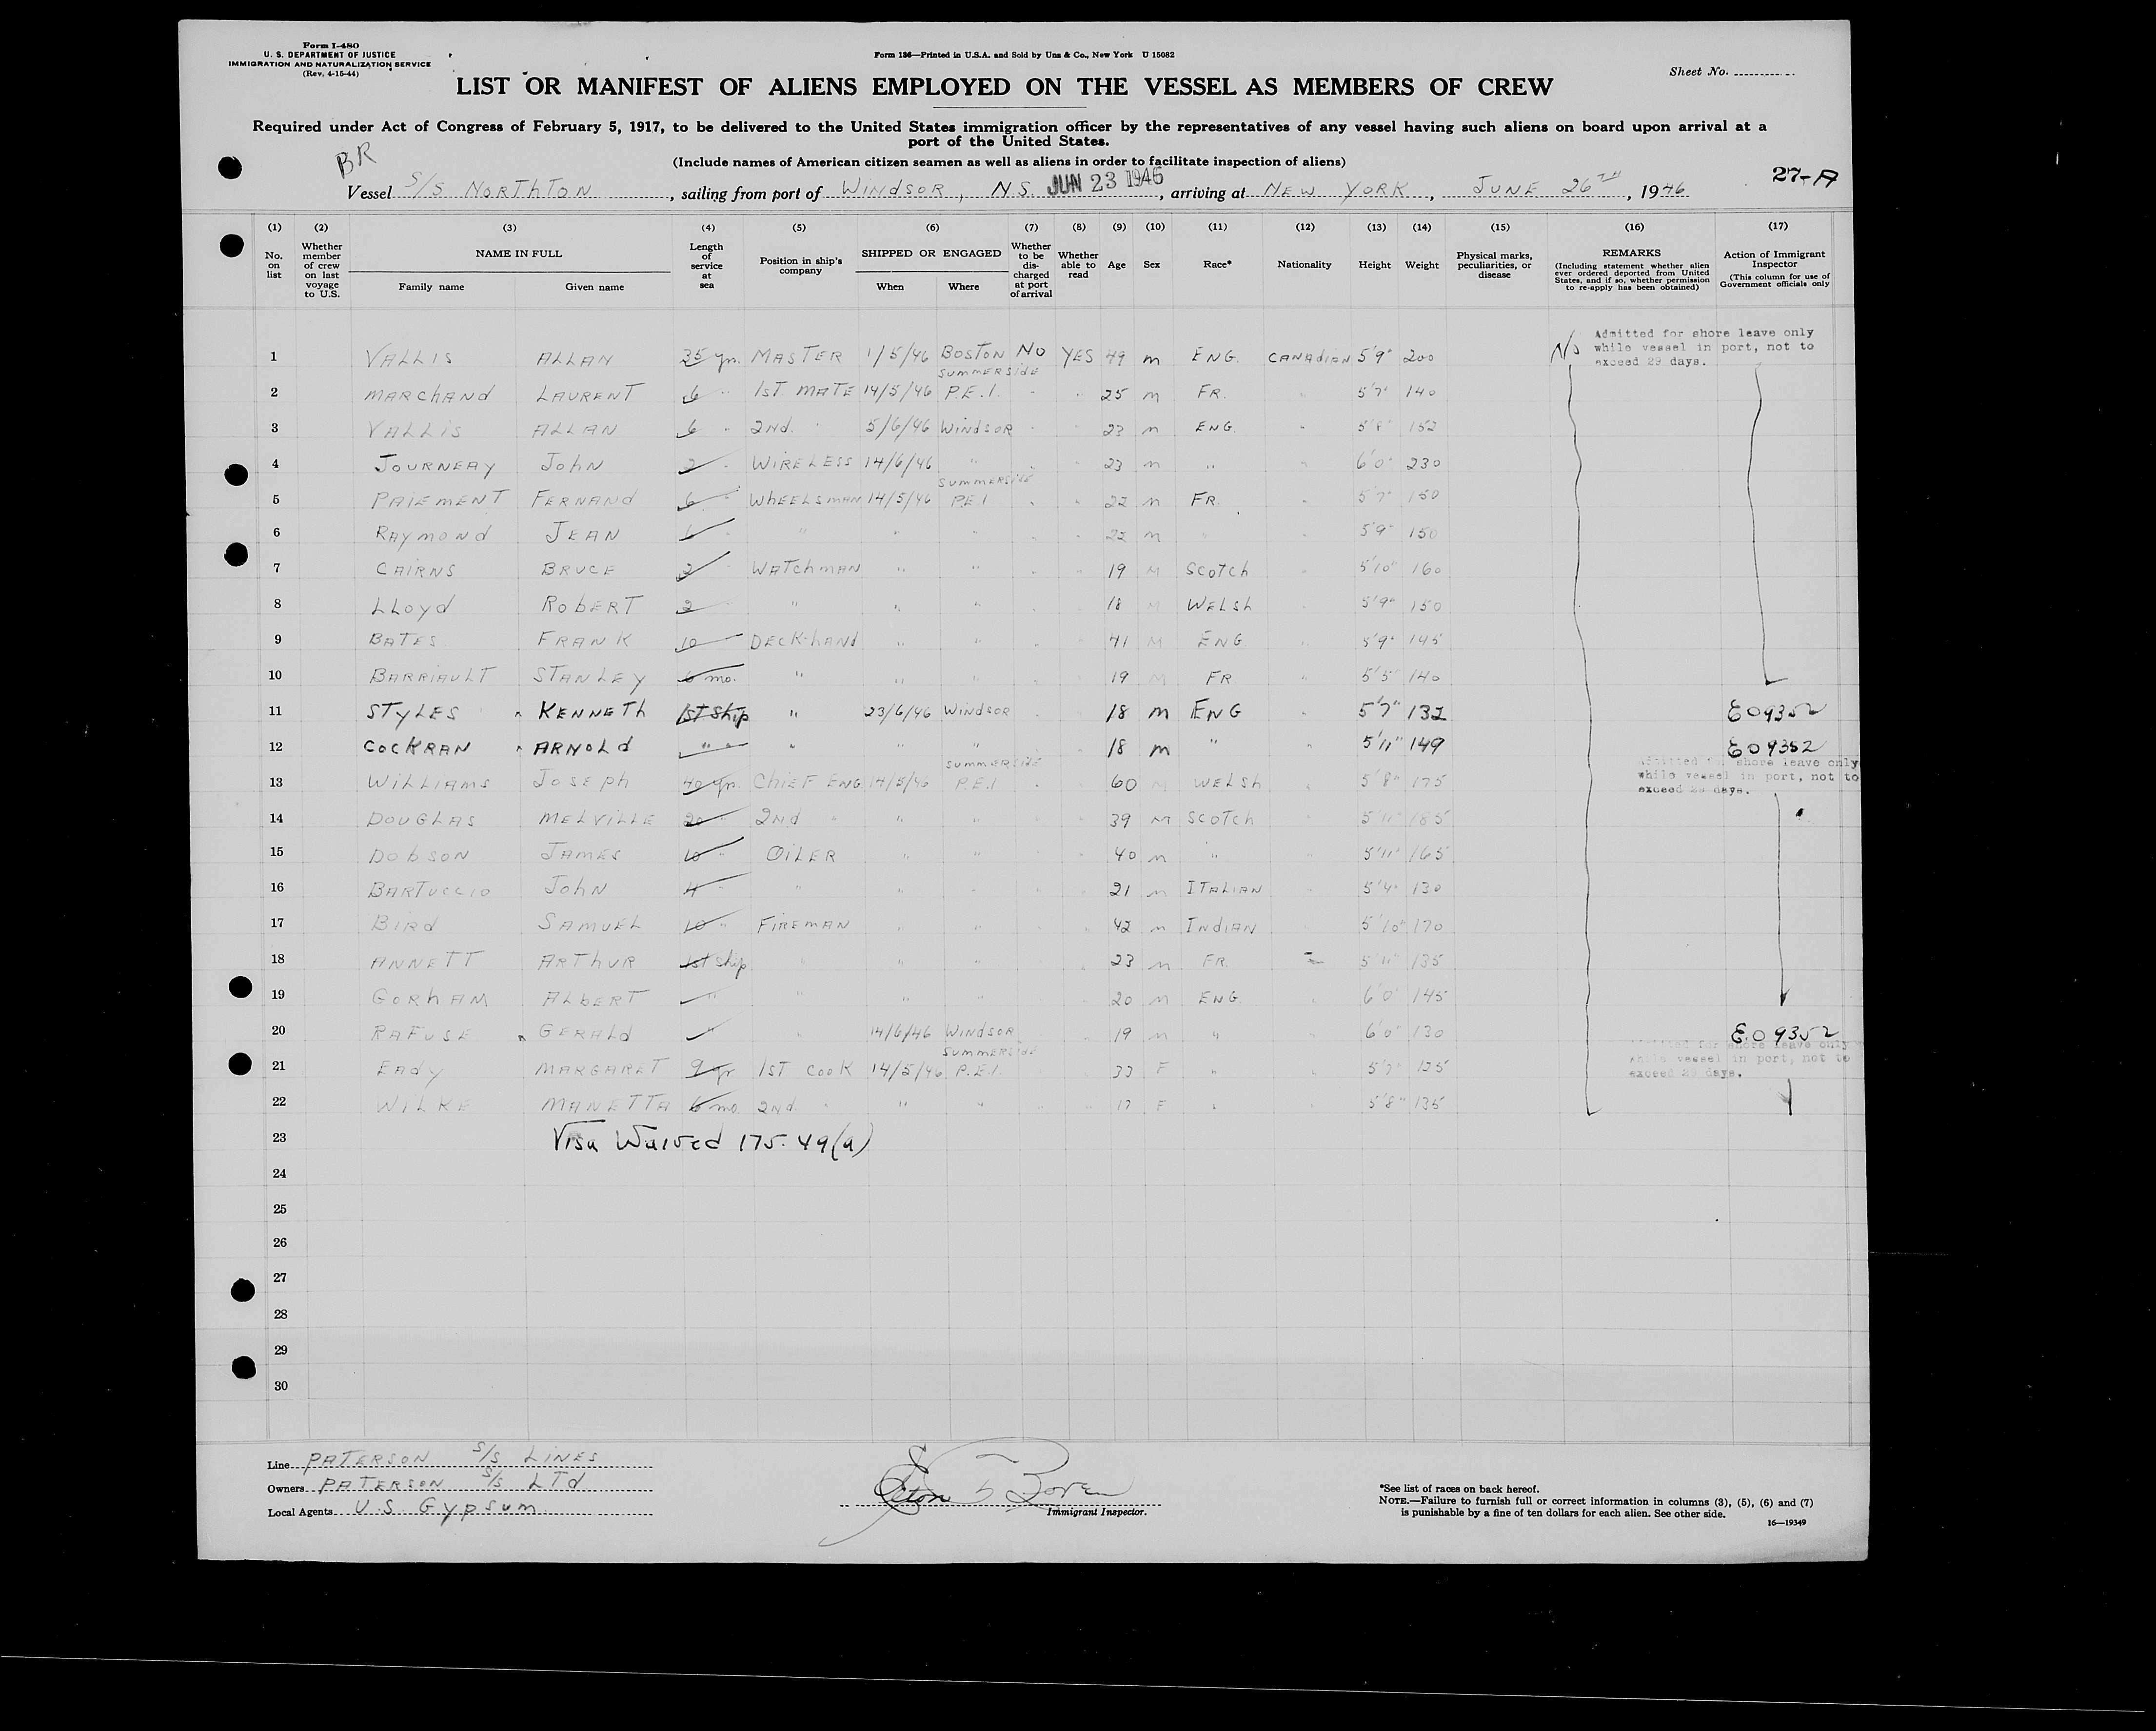 Form I-480
U. S. DEPARTMENT OF JUSTICE
IMMIGRATION AND NATURALIZATION SERVICE
(Rev. 4-15-44)
Form 136—Printed in U.S.A. and Sold by Unz & Co., New York U 15082
Sheet No.
LIST OR MANIFEST OF ALIENS EMPLOYED ON THE VESSEL AS MEMBERS OF CREW
Required under Act of Congress of February 5, 1917, to be delivered to the United States immigration officer by the representatives of any vessel having such aliens on board upon arrival at a
port of the United States.
(Include names of American citizen seamen as well as aliens in order to facilitate inspection of aliens)
BR
27-A
Vessel S/S NORTHTON, sailing from port of WINDSOR, N.S. JUN 23 1946, arriving at NEW YORK, JUNE 26TH, 1946
(1) (2) (3) (4) (5) (6) (7) (8) (9) (10) (11) (12) (13) (14) (15) (16) (17)
No. on list
Whether member of crew on last voyage to U.S.
NAME IN FULL
Family name
Given name
Length of service at sea
Position in ship's company
SHIPPED OR ENGAGED
When
Where
Whether to be discharged at port of arrival
Whether able to read
Age
Sex
Race*
Nationality
Height
Weight
Physical marks, peculiarities, or disease
REMARKS
(Including statement whether alien ever ordered deported from United States, and if so, whether permission to re-apply has been obtained)
Action of Immigrant Inspector
(This column for use of Government officials only
1 VALLIS ALLAN 35 yr. MASTER 1/5/46 BOSTON NO YES 49 M ENG. CANADIAN 5'9" 200 No Admitted for shore leave only while vessel in port, not to exceed 29 days.
2 MARCHAND LAURENT 6 " 1ST MATE 14/5/46 SUMMERSIDE P.E.I. " " 25 M FR. " 5'7" 140
3 VALLIS ALLAN 6 " 2ND. " 5/6/46 WINDSOR " " 23 M ENG. " 5'8" 152
4 JOURNEAY JOHN 2 " WIRELESS 14/6/46 " " " 23 M " " 6'0" 230
5 PAIEMENT FERNAND 6 " WHEELSMAN 14/5/46 SUMMERSIDE P.E.I " " 22 M FR. " 5'7" 150
6 RAYMOND JEAN 6 " " " " " " 22 M " " 5'9" 150
7 CAIRNS BRUCE 2 " WATCHMAN " " " " 19 M SCOTCH " 5'10" 160
8 LLOYD ROBERT 2 " " " " " " 18 M WELSH " 5'9" 150
9 BATES FRANK 10 DECK-HAND " " " " 41 M ENG " 5'9" 145
10 BARRIAULT STANLEY 6 mo. " " " " " 19 M FR " 5'5" 140
11 STYLES KENNETH 1ST SHIP " 23/6/46 WINDSOR " " 18 M ENG " 5'7" 132 EO9352
12 COCKRAN ARNOLD " " " " " 18 M " " 5'11" 149 EO9352
13 WILLIAMS JOSEPH 40 yr. CHIEF ENG 14/5/46 SUMMERSIDE P.E.I " " 60 M WELSH " 5'8" 175 Admitted for shore leave only while vessel in port, not to exceed 29 days.
14 DOUGLAS MELVILLE 20 " 2ND " " " " 39 M SCOTCH " 5'11" 185
15 DOBSON JAMES 10 " OILER " " " " 40 M " " 5'11" 165
16 BARTUCCIO JOHN 4 " " " " " " 21 M ITALIAN " 5'4" 130
17 BIRD SAMUEL 10 " FIREMAN " " " " 42 M INDIAN " 5'10" 170
18 ANNETT ARTHUR 1st ship " " " " " 23 M FR. " 5'11" 135
19 GORHAM ALBERT " " " " " " 20 M ENG. " 6'0" 145
20 RAFUSE GERALD " " 14/6/46 WINDSOR " " 19 M " " 6'0" 130 E.O 9352
21 EADY MARGARET 9 yr 1ST COOK 14/5/46 SUMMERSIDE P.E.I. 33 F " " 5'7" 125 Admitted for shore leave only while vessel in port, not to exceed 29 days.
22 WILKE MANETTA 6 mo. 2ND. " " " " " 17 F " " 5'8" 135
23 Visa Waived 175.49(a)
24
25
26
27
28
29
30
Line PATERSON S/S LINES
Owners PATERSON S/S LTD
Local Agents U.S. GYPSUM
Immigrant Inspector.
*See list of races on back hereof.
NOTE.—Failure to furnish full or correct information in columns (3), (5), (6) and (7)
is punishable by a fine of ten dollars for each alien. See other side.
16—19349